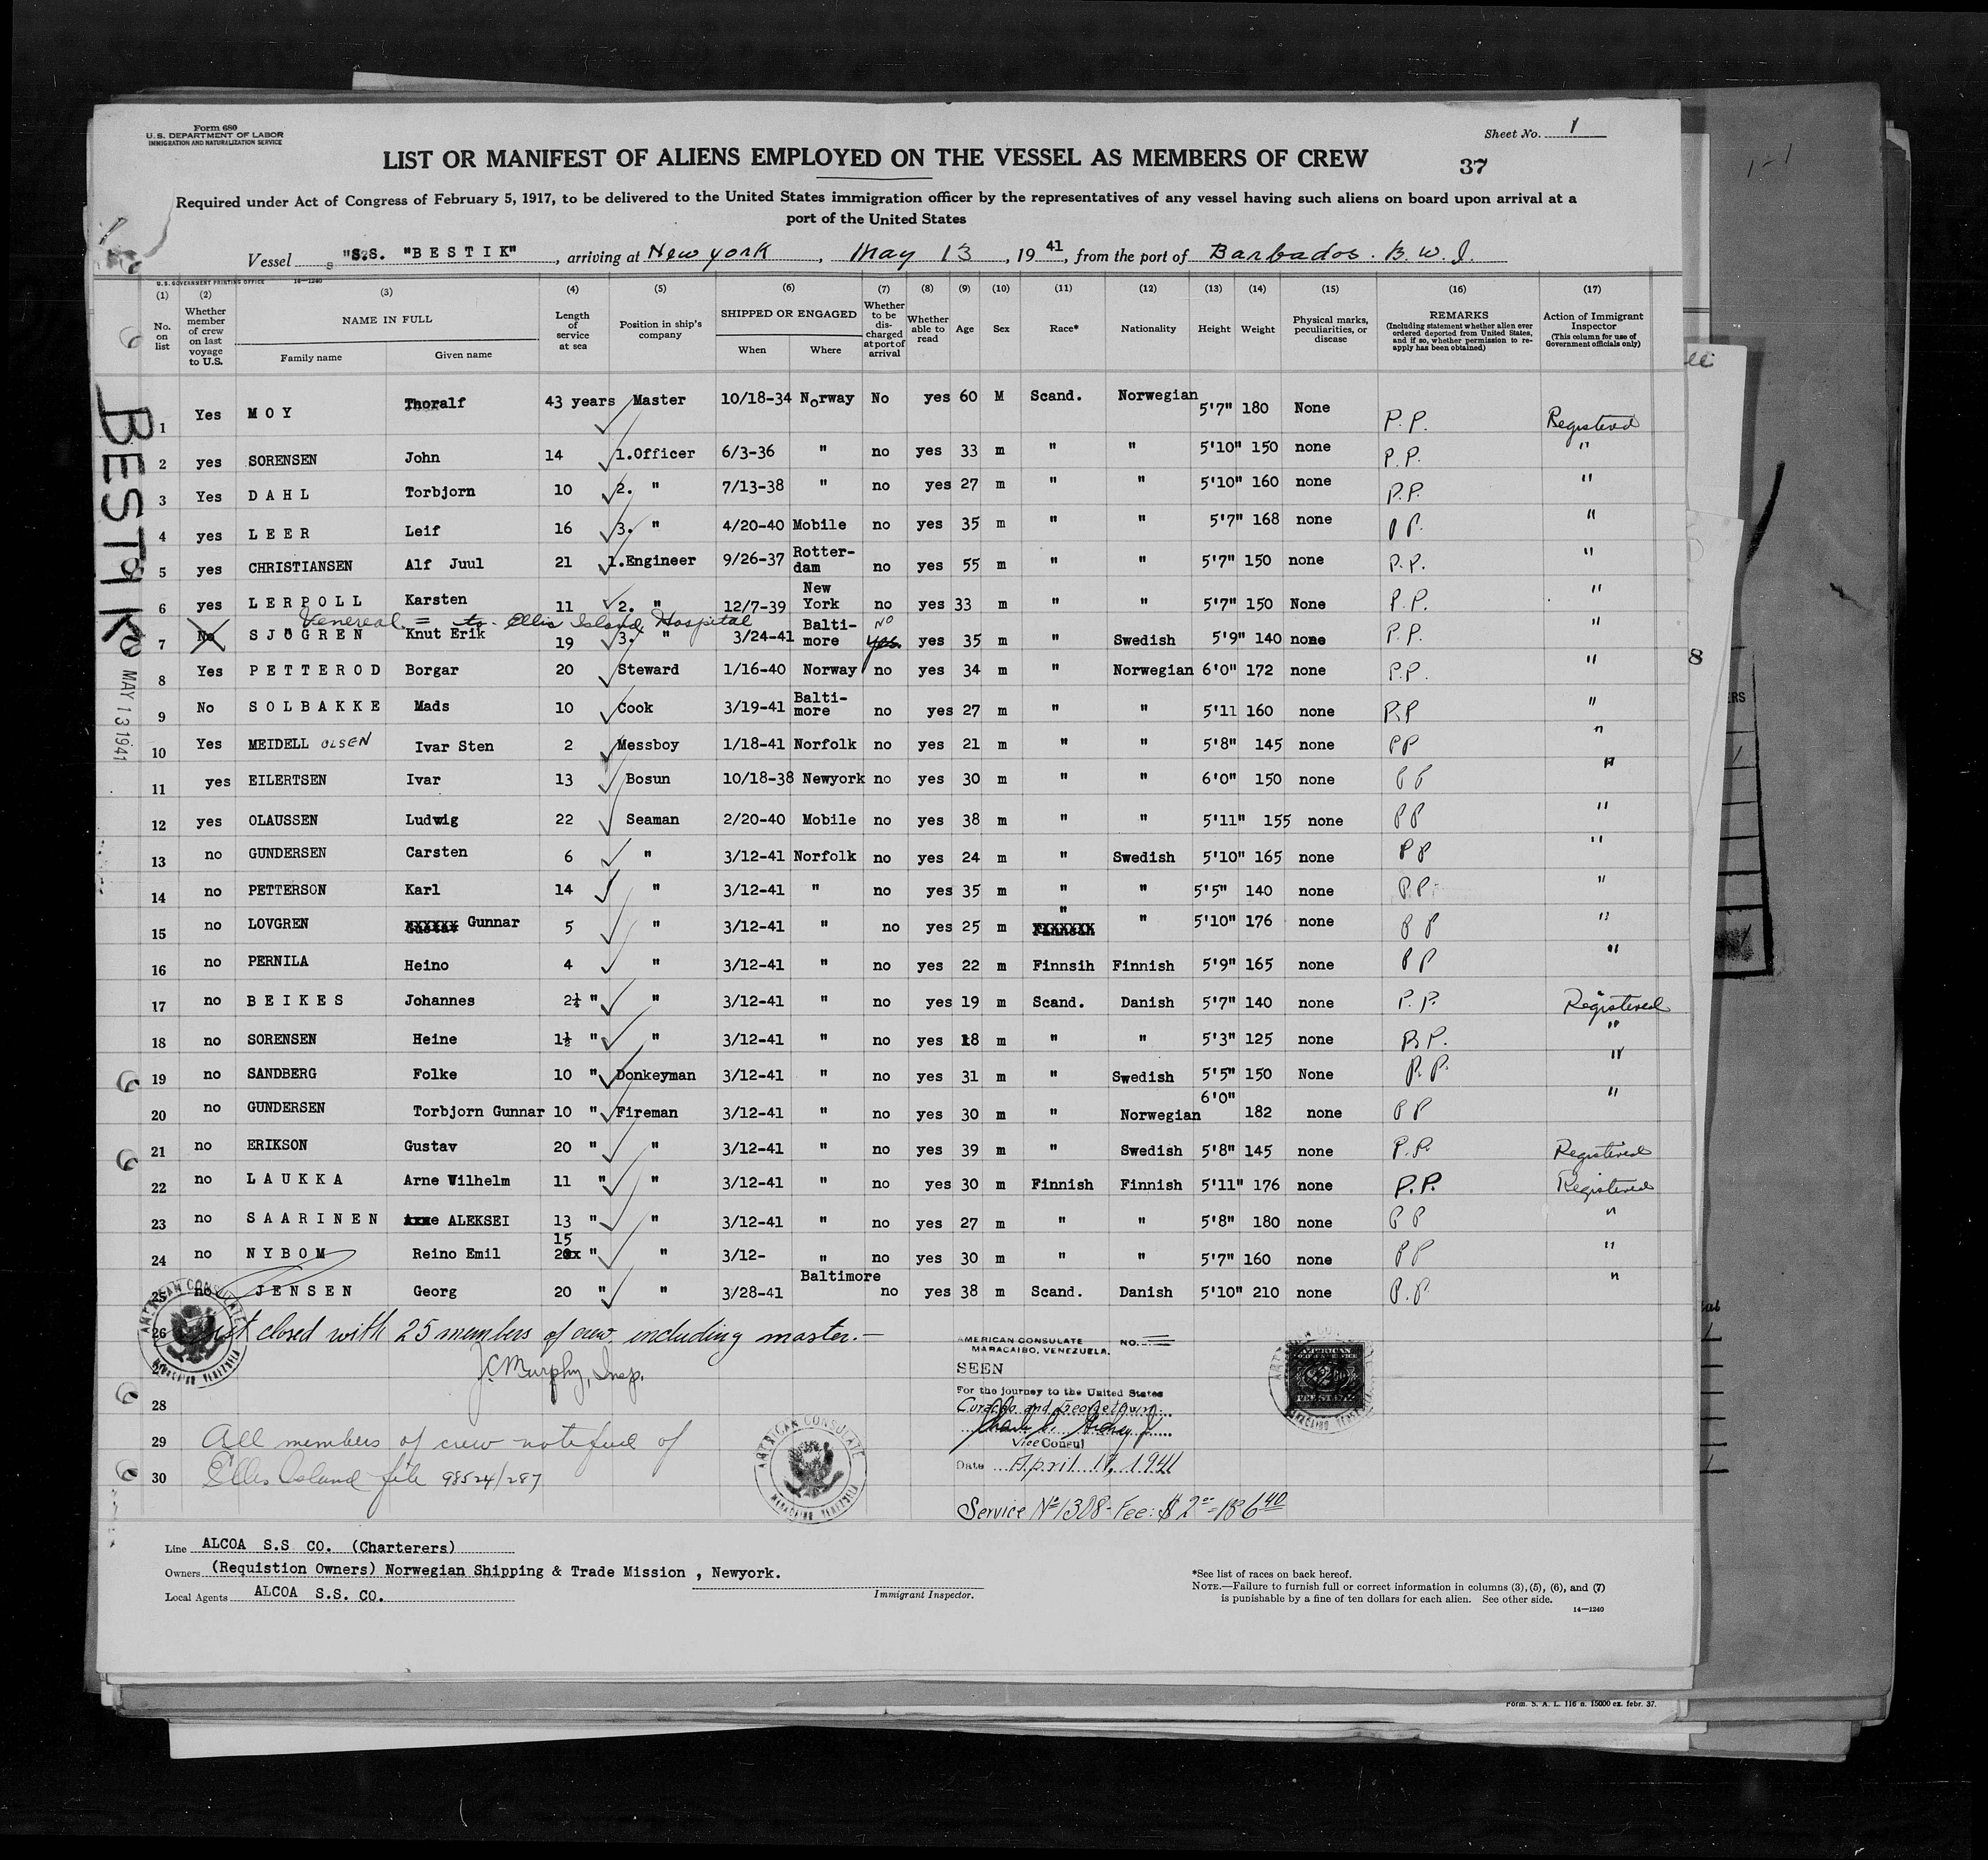 Form 680
U. S. DEPARTMENT OF LABOR
IMMIGRATION AND NATURALIZATION SERVICE
Sheet No. 1
LIST OR MANIFEST OF ALIENS EMPLOYED ON THE VESSEL AS MEMBERS OF CREW
37
Required under Act of Congress of February 5, 1917, to be delivered to the United States immigration officer by the representatives of any vessel having such aliens on board upon arrival at a
port of the United States
Vessel "S.S. "BESTIK", arriving at New York, May 13, 1941, from the port of Barbados. B.W.I.
U. S. GOVERNMENT PRINTING OFFICE 14—1240
(1) (2) (3) (4) (5) (6) (7) (8) (9) (10) (11) (12) (13) (14) (15) (16) (17)
No. on list Whether member of crew on last voyage to U.S. NAME IN FULL Family name Given name Length of service at sea Position in ship's company SHIPPED OR ENGAGED When Where Whether to be discharged at port of arrival Whether able to read Age Sex Race* Nationality Height Weight Physical marks, peculiarities, or disease REMARKS (Including statement whether alien ever ordered deported from United States, and if so, whether permission to reapply has been obtained) Action of Immigrant Inspector (This column for use of Government officials only)
1 Yes MOY Thoralf 43 years Master 10/18-34 Norway No yes 60 M Scand. Norwegian 5'7" 180 None P.P. Registered
2 yes SORENSEN John 14 1.Officer 6/3-36 " no yes 33 m " " 5'10" 150 none P.P. "
3 Yes DAHL Torbjorn 10 2. " 7/13-38 " no yes 27 m " " 5'10" 160 none P.P. "
4 yes LEER Leif 16 3. " 4/20-40 Mobile no yes 35 m " " 5'7" 168 none P.P. "
5 yes CHRISTIANSEN Alf Juul 21 1.Engineer 9/26-37 Rotter-dam no yes 55 m " " 5'7" 150 none P.P. "
6 yes LERPOLL Karsten 11 2. " 12/7-39 New York no yes 33 m " " 5'7" 150 None P.P. "
Venereal = to Ellis Island Hospital
7 No SJÖGREN Knut Erik 19 3. " 3/24-41 Balti-more yes NO yes 35 m " Swedish 5'9" 140 none P.P. "
8 Yes PETTEROD Borgar 20 Steward 1/16-40 Norway no yes 34 m " Norwegian 6'0" 172 none P.P. "
9 No SOLBAKKE Mads 10 Cook 3/19-41 Balti-more no yes 27 m " " 5'11 160 none P.P "
10 Yes MEIDELL OLSEN Ivar Sten 2 Messboy 1/18-41 Norfolk no yes 21 m " " 5'8" 145 none PP "
11 yes EILERTSEN Ivar 13 Bosun 10/18-38 Newyork no yes 30 m " " 6'0" 150 none PP "
12 yes OLAUSSEN Ludwig 22 Seaman 2/20-40 Mobile no yes 38 m " " 5'11" 155 none PP "
13 no GUNDERSEN Carsten 6 " 3/12-41 Norfolk no yes 24 m " Swedish 5'10" 165 none PP "
14 no PETTERSON Karl 14 " 3/12-41 " no yes 35 m " " 5'5" 140 none P.P. "
15 no LOVGREN Gunnar 5 " 3/12-41 " no yes 25 m " " 5'10" 176 none PP "
16 no PERNILA Heino 4 " 3/12-41 " no yes 22 m Finnsih Finnish 5'9" 165 none PP "
17 no BEIKES Johannes 2½ " " 3/12-41 " no yes 19 m Scand. Danish 5'7" 140 none P.P. Registered
18 no SORENSEN Heine 1½ " " 3/12-41 " no yes 18 m " " 5'3" 125 none P.P. "
19 no SANDBERG Folke 10 " Donkeyman 3/12-41 " no yes 31 m " Swedish 5'5" 150 None P.P. "
20 no GUNDERSEN Torbjorn Gunnar 10 " Fireman 3/12-41 " no yes 30 m " Norwegian 6'0" 182 none PP "
21 no ERIKSON Gustav 20 " " 3/12-41 " no yes 39 m " Swedish 5'8" 145 none P.P. Registered
22 no LAUKKA Arne Wilhelm 11 " " 3/12-41 " no yes 30 m Finnish Finnish 5'11" 176 none P.P. Registered
23 no SAARINEN ALEKSEI 13 " " 3/12-41 " no yes 27 m " " 5'8" 180 none PP "
24 no NYBOM Reino Emil 15 " " 3/12- " no yes 30 m " " 5'7" 160 none PP "
25 no JENSEN Georg 20 " " 3/28-41 Baltimore no yes 38 m Scand. Danish 5'10" 210 none P.P. "
26 List closed with 25 members of crew, including master.—
J.C. Murphy, Insp.
28
29 All members of crew notified of
30 Ellis Island file 98524/287
AMERICAN CONSULATE NO.
MARACAIBO, VENEZUELA.
SEEN
For the journey to the United States
Curaçao and Georgetown
Vice Consul
Date April 17, 1941
Service Nº 1308- Fee: $2.00 = B 6.40
AMERICAN CONSULATE MARACAIBO VENEZUELA
AMERICAN CONSULATE MARACAIBO VENEZUELA
BESTIK
MAY 13 1941
Line ALCOA S.S CO. (Charterers)
Owners (Requistion Owners) Norwegian Shipping & Trade Mission , Newyork.
Local Agents ALCOA S.S. CO.
Immigrant Inspector.
*See list of races on back hereof.
NOTE.—Failure to furnish full or correct information in columns (3), (5), (6), and (7)
is punishable by a fine of ten dollars for each alien. See other side.
14—1240
Form. S. A. L. 116 n. 15000 ex. febr. 37.
8